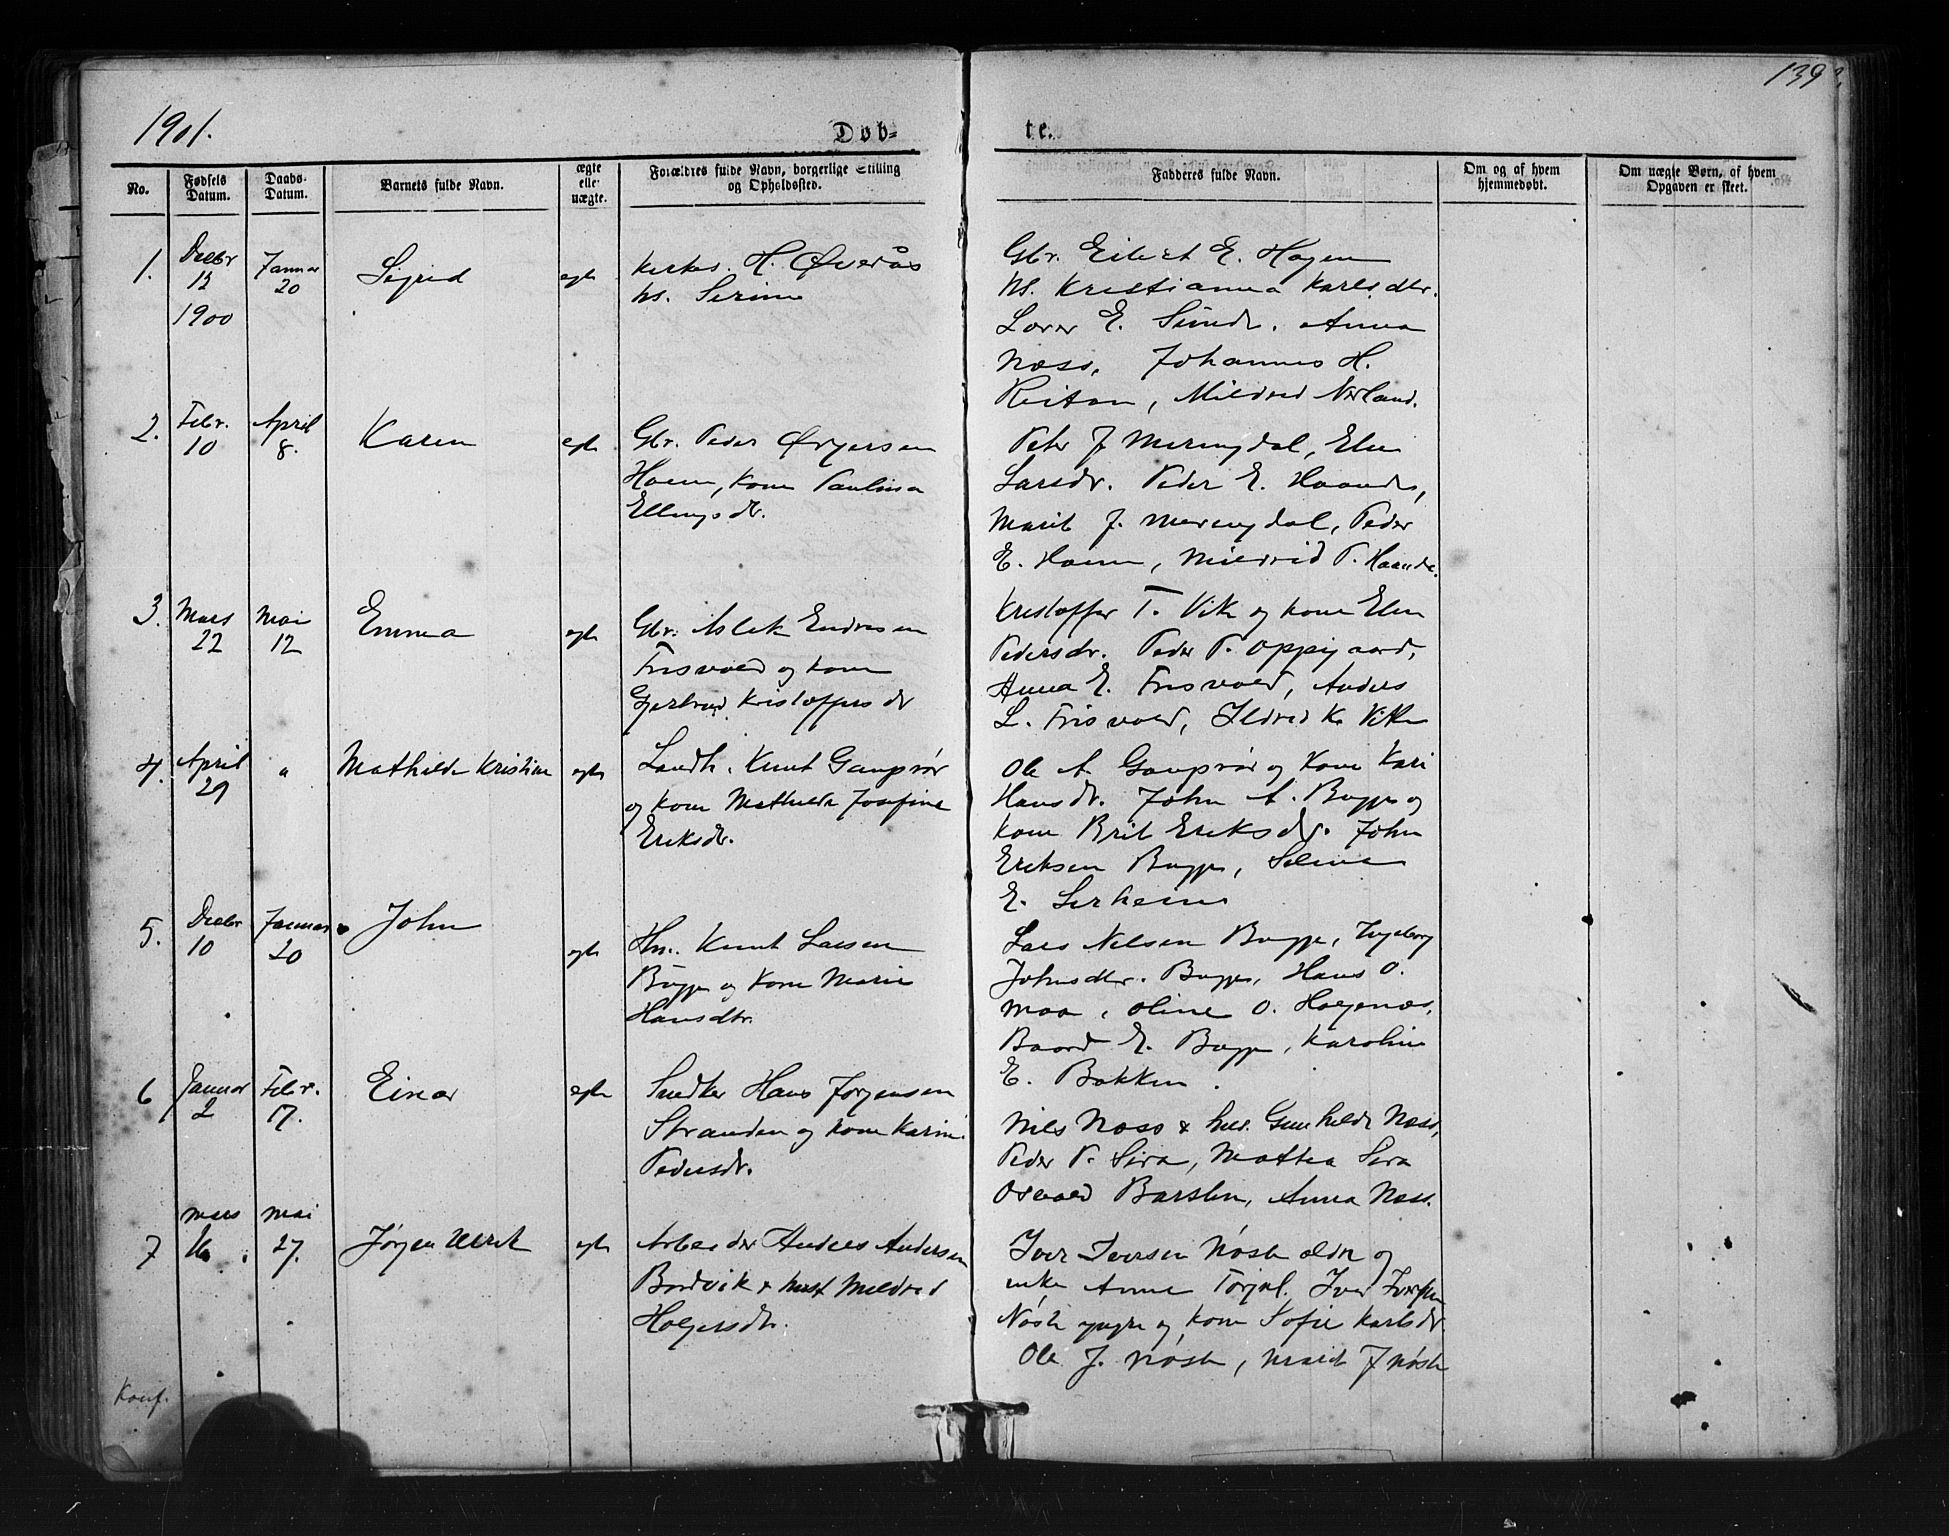 139
1901.
Døb-
te.
No.
Fødsels Datum.
Daabs- Datum.
Barnets fulde Navn.
ægte eller uægte.
Forældres fulde Navn, borgerlige Stilling og Opholdssted.
Fadderes fulde Navn.
Om og af hvem hjemmedøbt.
Om uægte Børn, af hvem Opgaven er skeet.
1.
Decbr
12
1900
Januar
20
Sigrid
egte
Kirkes. H. Øverås
hs. Serine
Gbr. Eilert E. Hagen
hs. Kristianna Karlsdtr.
Lærer E. Sunde. Anna
Næss, Johannes H.
Reitan, Mildred Nerland.
2.
Febr.
10
April
8.
Karen
egte
Gbr. Peder
Hoem, kone Paulina
Ellingsdtr.
Peter J Meringdal, Elen
Larsdr. Peder E. Haande,
Marit J. Meringdal, Peder
E. Hoem, Mildrid P. Haande.
3.
Mars
22
Mai
12
Emma
egte
Gbr. Aslak Endresen
Frisvold og kone
Gjertrud Kristoffersdr
Kristoffer T. Vik og kone Elen
Pedersdr. Peder P. Oppigaard,
Anna E. Frisvold, Anders
L. Frisvold, Ildrid K. Vik
4.
April
29
"
Mathilde Kristine
egte
Landh. Knut Gangrør
og kone Mathilde Josefine
Eriksdr.
Ole A. Gangrør og kone Kari
Hansdr. John A. Bugge og
kone Brit Eriksdr. John
Eriksen Bugge, Seline
E.
5.
Decbr
10
Januar
20
John
egte
Knut Larsen
Bugge og kone Marie
Hansdtr.
Lars Nilsen Bugge, Ingeborg
Johnsdtr. Bugge, Hans O.
Moa, Oline O. Holgenæs,
Baard E. Bugge, Karoline
E. Bakken.
6
Januar
2
Febr.
17.
Einar
egte
Snedker Hans Jørgensen
Stranden og kone Karine
Pedersdr.
Nils Næss & hus. Gunhilde Næss,
Peder P. Sira, Mattea Sira
Osvald Barsten, Anna Næss.
7
Mars
16
Mai
27.
Jørgen Ulrik
egte
Arbeider Anders Andersen
Bordvik & hust Mildred
Holgersdtr.
Iver Iversen Nøste ældre og
enke Anne Torjul. Iver Iversen
Nøste yngre og kone Sofie Karlsdr.
Ole J. Nøste, Marit J Nøste
Konf.